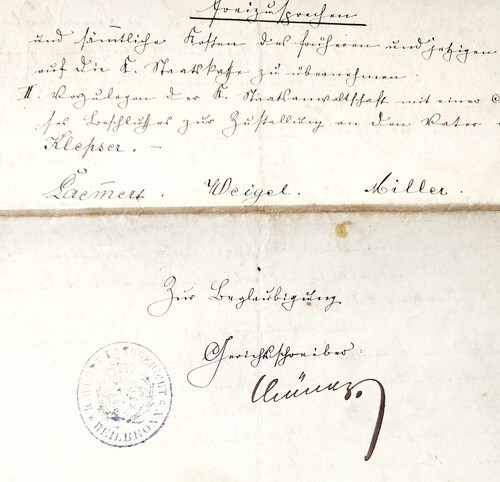 freizusprechen
und sämtliche Kosten des früheren und jetzigen
auf die K. Staatskasse zu übernehmen.
II. Vorzulegen der K. Staatsanwaltschaft mit einer
ses Beschlusses zur Zustellung an den Vater
Klepser. –
Laemert. Weigel. Miller.
Zur Beglaubigung
Gerichtsschreiber:
LANDGERICHT
HEILBRONN